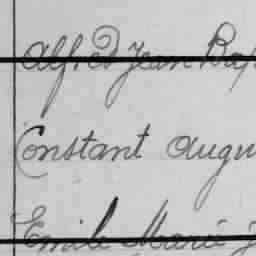 Alfred Jean Bap
Constant Augu
Emile Marie J